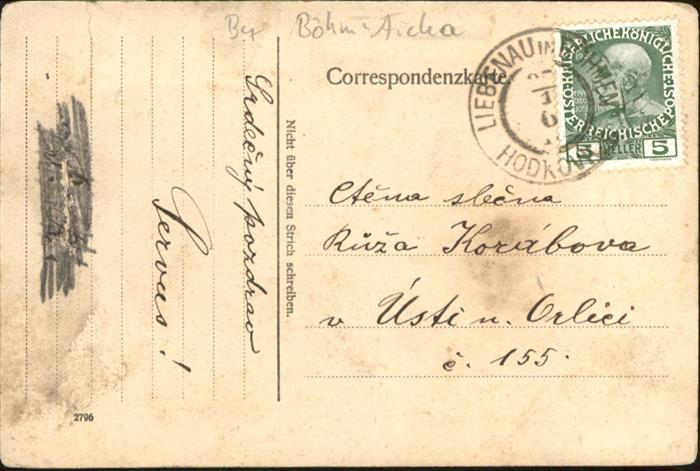 Bez Böhm. Aicha
Correspondenzkarte
LIEBENAU in BÖHMEN
HODKOV
KAISERLICHE KÖNIGLICHE
ÖSTERREICHISCHE POST
5 HELLER 5
Srdečný pozdrav
Servus!
Nicht über diesen Strich schreiben.
Ctěna slečna
Růža Korábova
v Ústí n. Orlici
č. 155.
2796